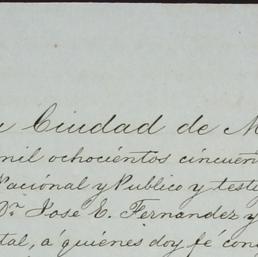 Ciudad de M
mil ochocientos cincuen
Nacional y Publico y testi
Dn. Jose E. Fernandez y
tal, a quienes doy fé con